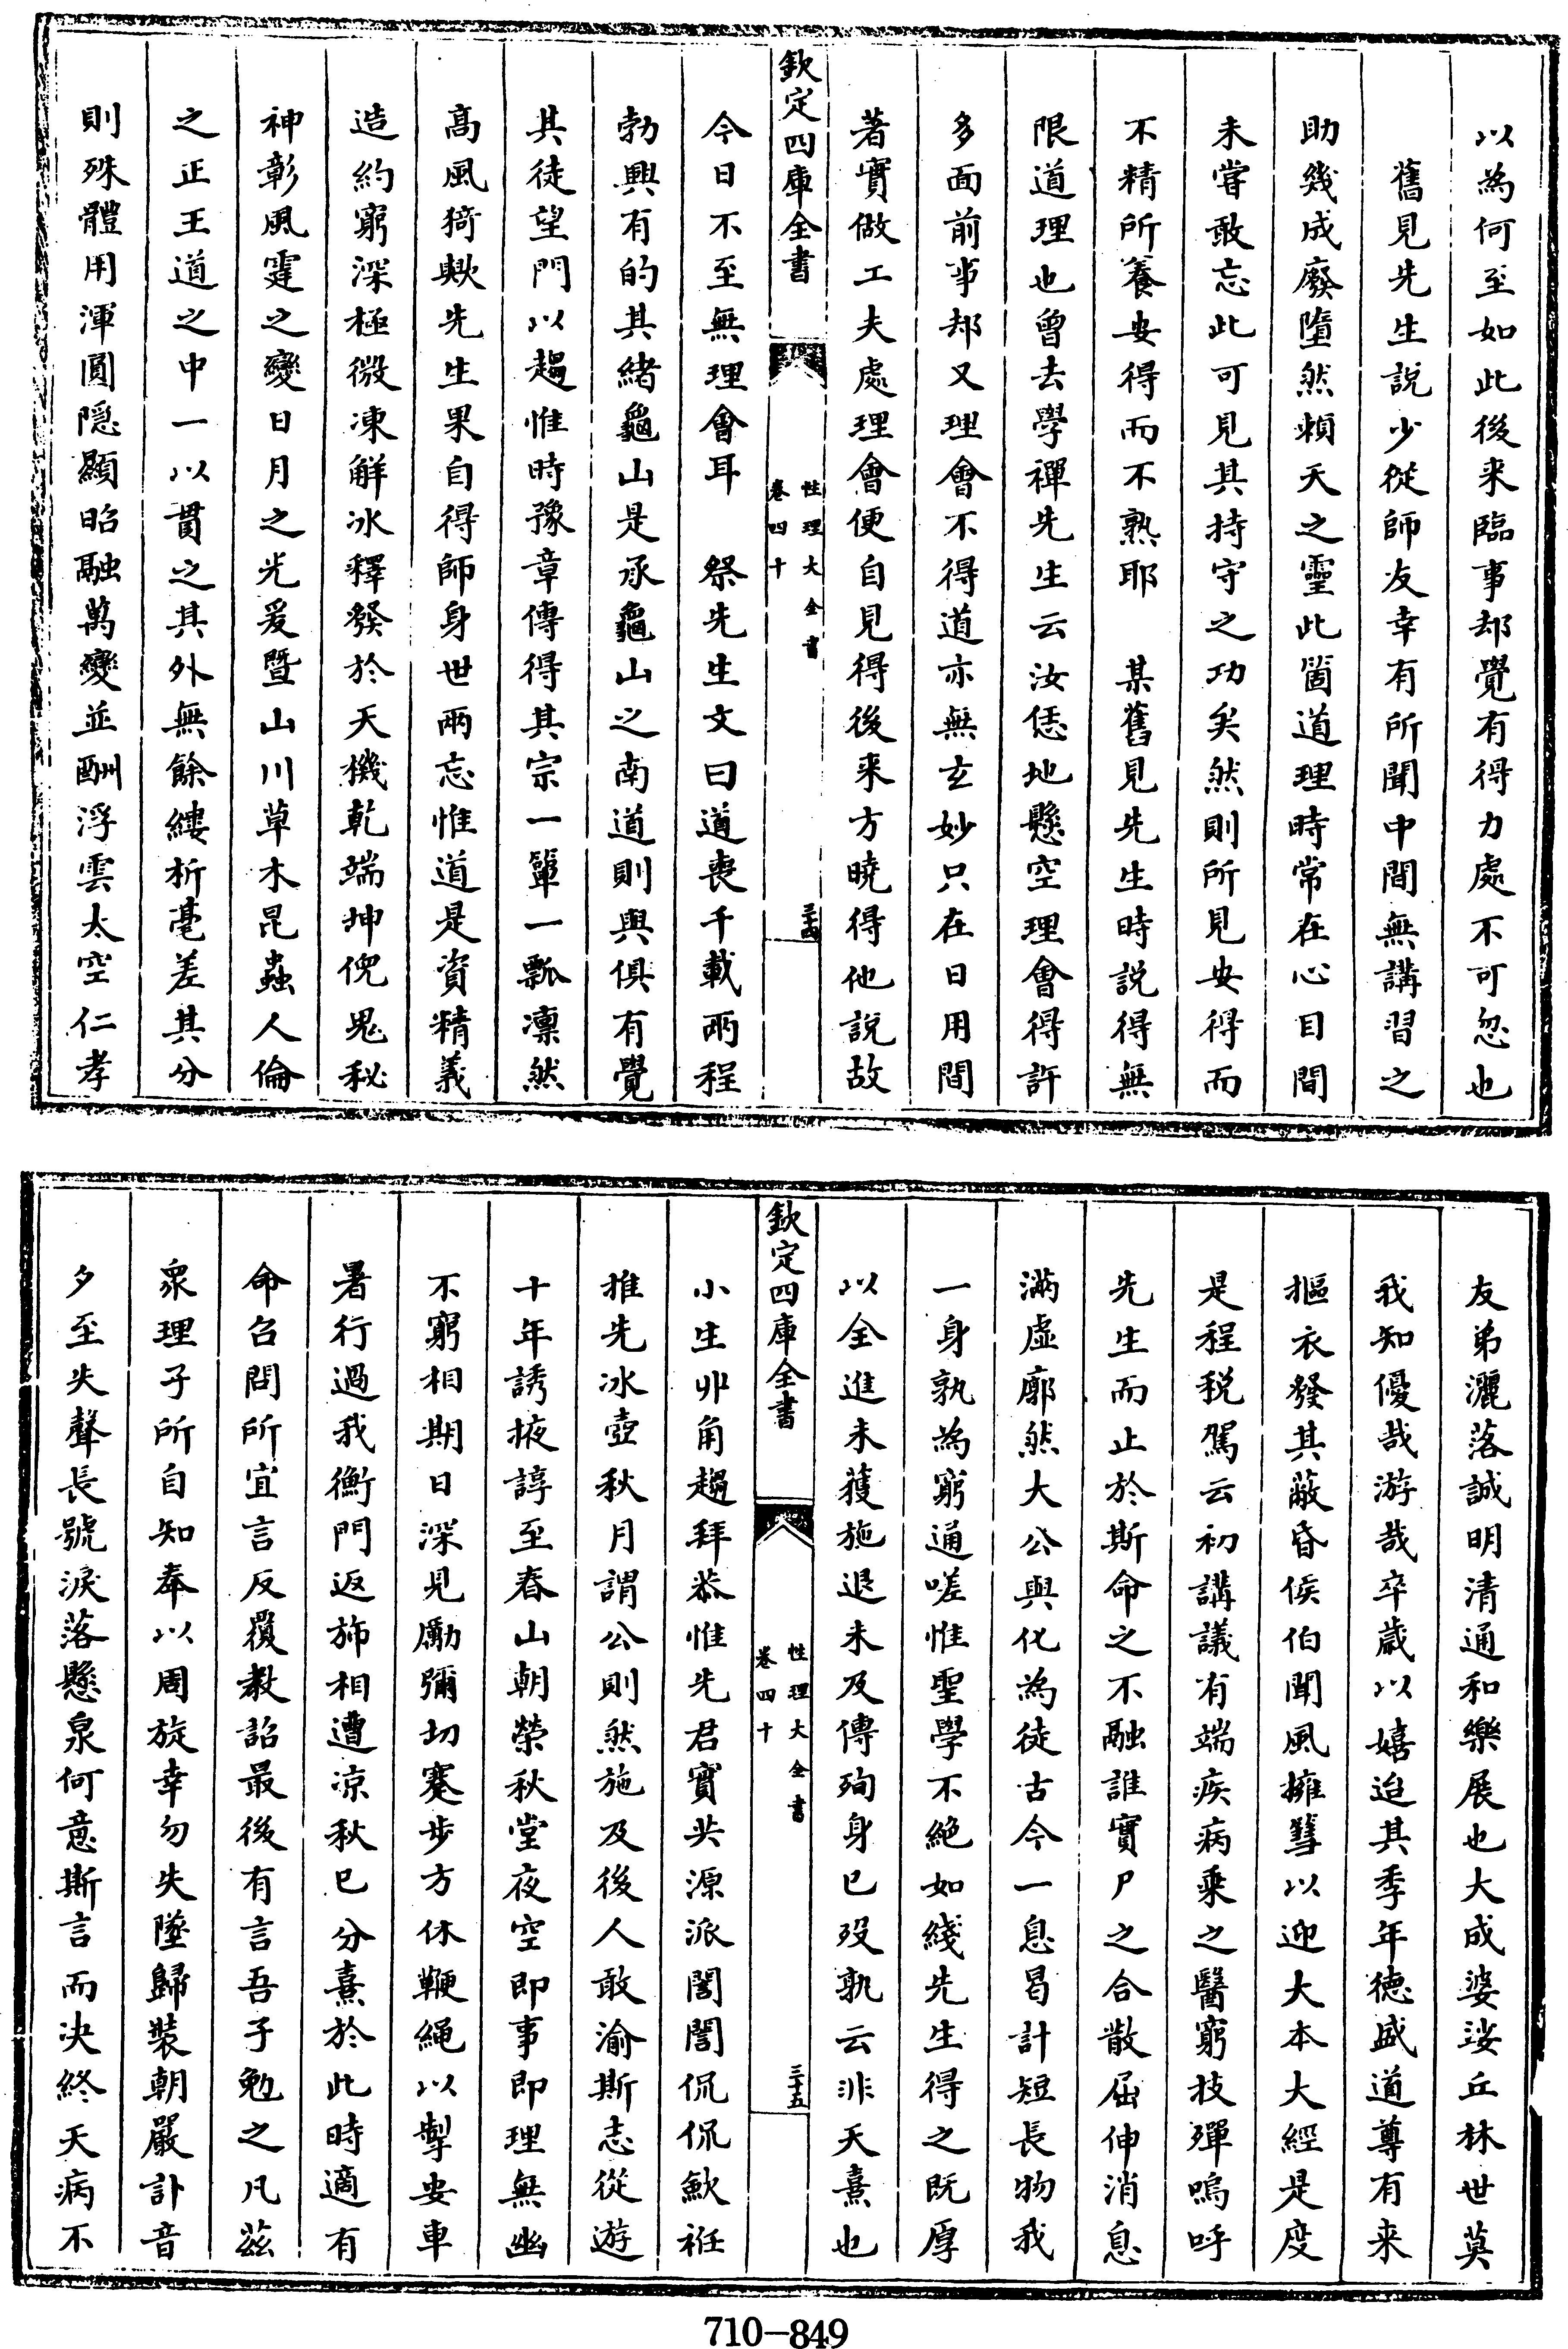 以為何至如此後来臨事却覺有得力處不可忽也
舊見先生說少從師友幸有所聞中間無講習之
助幾成廢墮然賴天之靈此箇道理時常在心目間
未嘗敢忘此可見其持守之功矣然則所見安得而
不精所養安得而不熟耶　某舊見先生時説得無
限道理也曾去學禪先生云汝恁地懸空理會得許
多面前事却又理會不得道亦無玄妙只在日用間
著實做工夫處理會便自見得後来方曉得他說故
欽定四庫全書
性理大全書
卷四十
三十四
今日不至無理會耳　祭先生文曰道喪千載兩程
勃興有的其緒龜山是承龜山之南道則與俱有覺
其徒望門以趨惟時豫章傳得其宗一簞一瓢凛然
高風猗歟先生果自得師身世兩忘惟道是資精義
造約窮深極微凍解冰釋發於天機乾端坤倪鬼秘
神彰風霆之變日月之光爰暨山川草木昆蟲人倫
之正王道之中一以貫之其外無餘縷析毫差其分
則殊體用渾圓隠顯昭融萬變並酬浮雲太空仁孝
友弟灑落誠明清通和樂展也大成婆娑丘林世莫
我知優哉游哉卒歲以嬉迨其季年德盛道尊有来
摳衣發其蔽昏侯伯聞風擁彗以迎大本大經是度
是程税駕云初講議有端疾病乗之醫窮技殫嗚呼
先生而止於斯命之不融誰實尸之合散屈伸消息
滿虚廓然大公與化為徒古今一息曷計短長物我
一身孰為窮通嗟惟聖學不絶如綫先生得之既厚
以全進未獲施退未及傳殉身已殁孰云非天熹也
欽定四庫全書
性理大全書
卷四十
三十五
小生丱角趨拜恭惟先君實共源派誾誾侃侃歛袵
推先冰壺秋月謂公則然施及後人敢渝斯志從遊
十年誘掖諄至春山朝榮秋堂夜空即事即理無幽
不窮相期日深見勵彌切蹇步方休鞭繩以掣安車
暑行過我衡門返斾相遭凉秋已分熹於此時適有
命召問所宜言反覆教詔最後有言吾子勉之凡兹
衆理子所自知奉以周旋幸勿失墜歸裝朝嚴訃音
夕至失聲長號淚落懸泉何意斯言而决終天病不
710-849